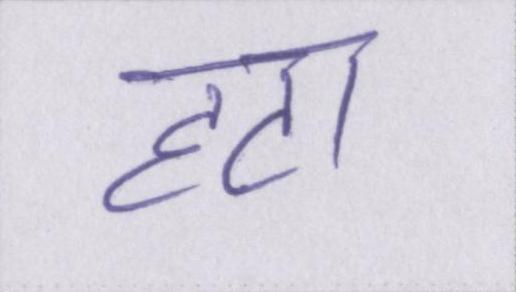 हटा